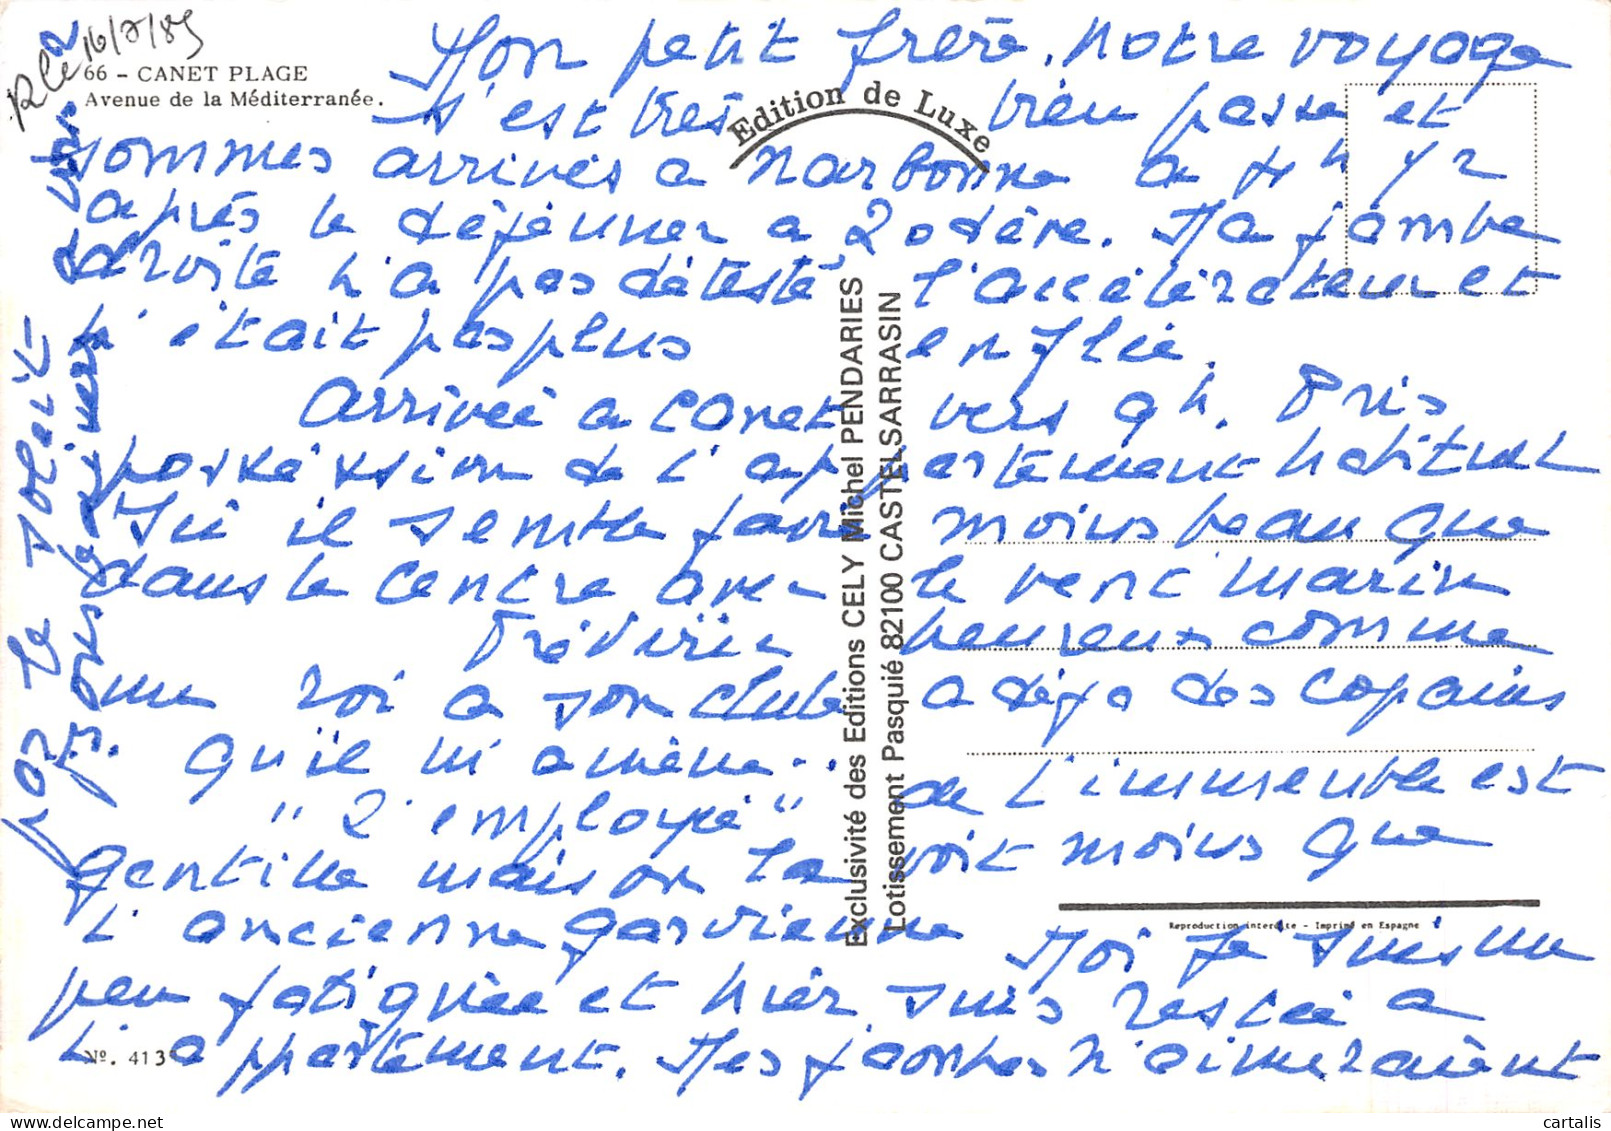 Rle 16/7/85
66 - CANET PLAGE
Avenue de la Méditerranée.
Edition de Luxe
Mon petit frère. Notre voyage
s'est très bien passé et
sommes arrivés a Narbonne a 4h 1/2
après le déjeuner a Lodève. Ma jambe
droite n'a pas détesté l'accélérateur et
n'était pas plus enflée.
Arrivée a Canet vers 9h. Pris
possession de l'appartement habituel
Ici il semble faire moins beau que
dans le centre avec le vent marin
Frédéric heureux comme
un roi a son club a déjà des copains
qu'il m'amène..
"L'employé" de l'immeuble est
gentille mais on la voit moins que
l'ancienne gardienne Moi je suis un
peu fatiguée et hier suis restée a
l'appartement. Mes jambes n'aimeraient
pas le soleil
Exclusivité des Editions CELY Michel PENDARIES
Lotissement Pasquié 82100 CASTELSARRASIN
Reproduction interdite - Imprimé en Espagne
Nº. 413